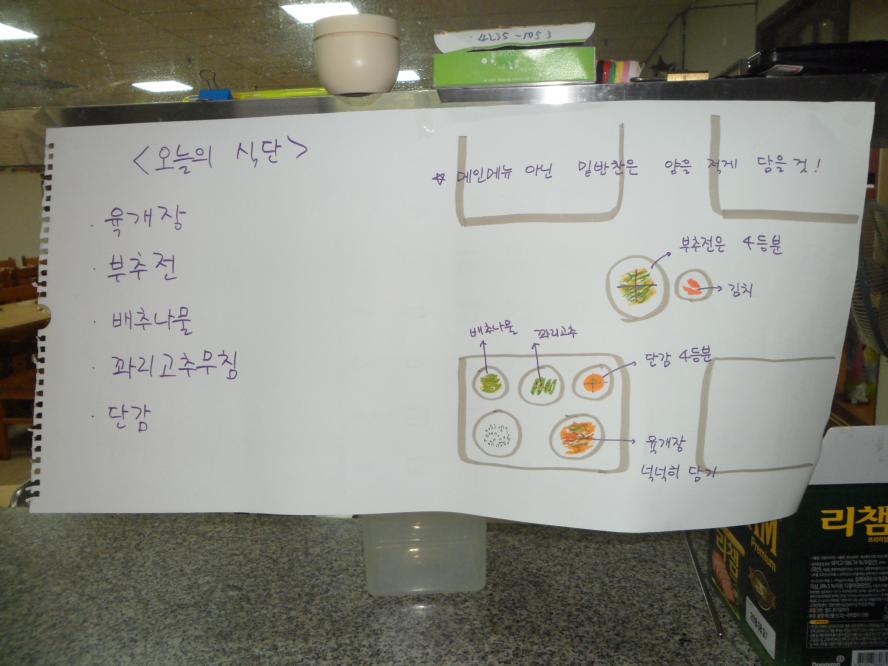 4235-1053
<오늘의 식단>
· 육개장
· 부추전
· 배추나물
· 꽈리고추무침
· 단감
* 메인메뉴 아닌 밑반찬은 양을 적게 담을것!
부추전은 4등분
김치
배추나물
꽈리고추
단감 4등분
육개장
넉넉히 담기
리챔
Premium
리챔
프리미엄